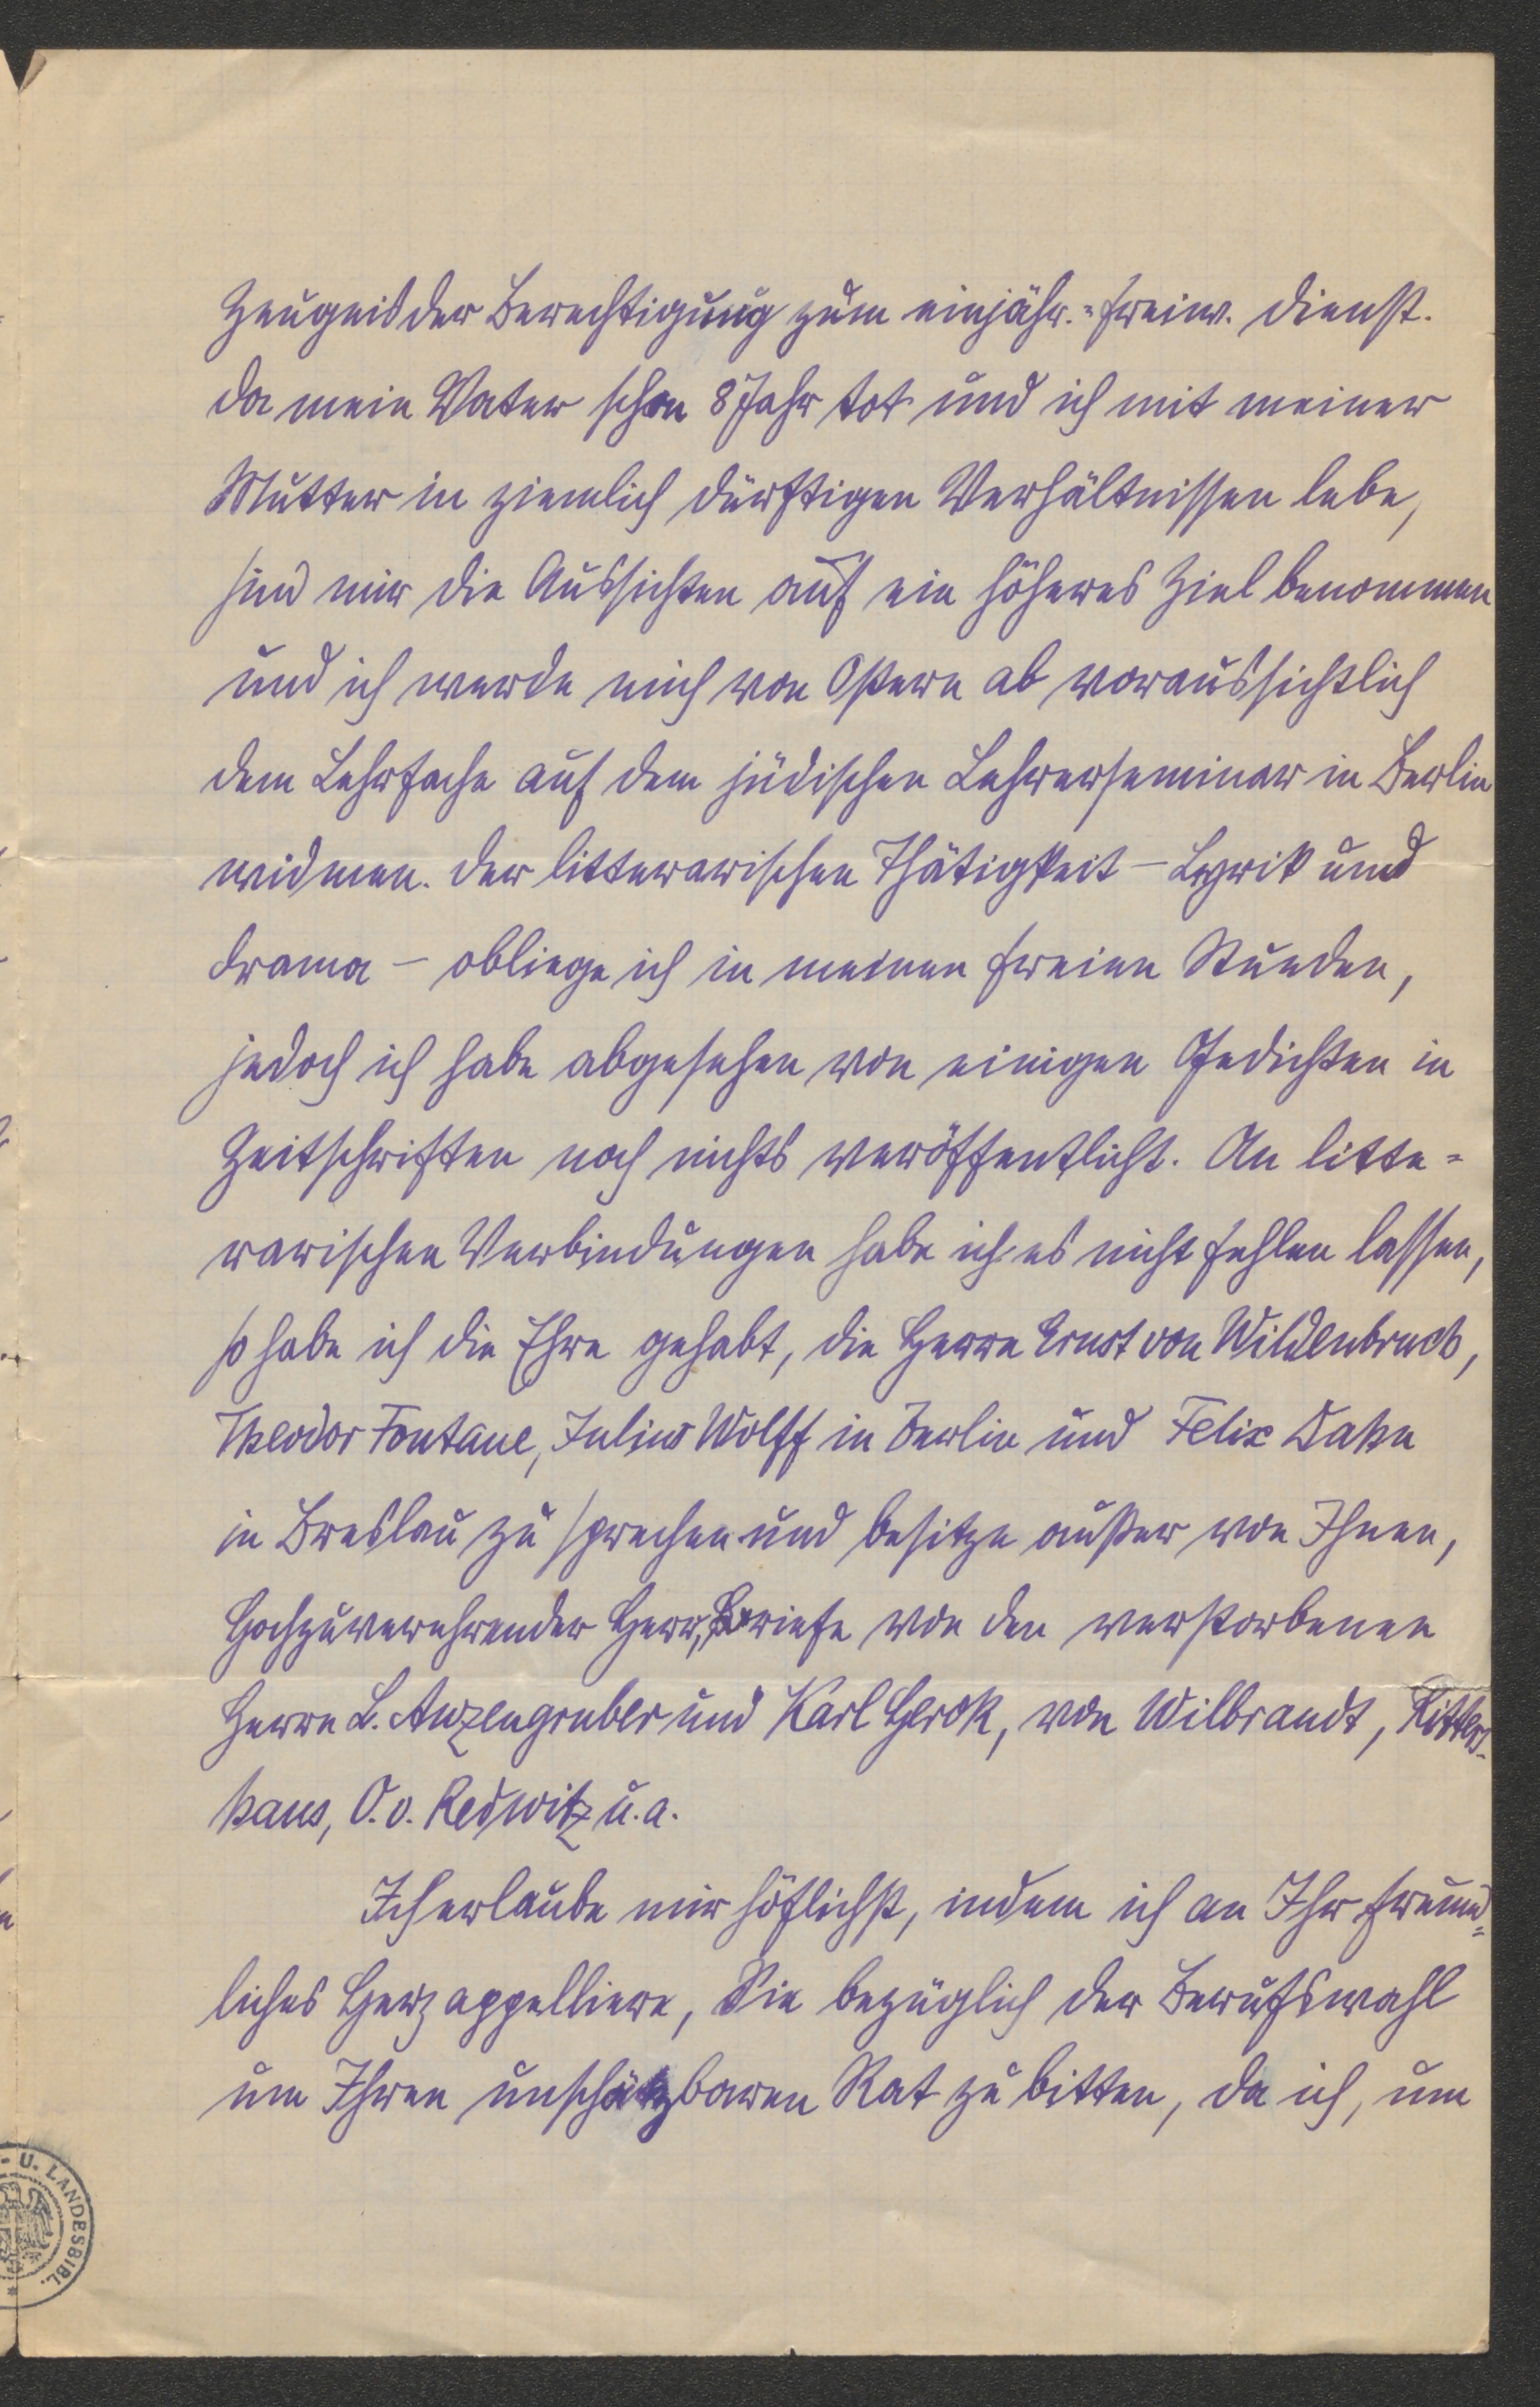 Zeugnis der Berechtigung zum einjähr.-freiw. Dienst.
Da mein Vater schon 8 Jahr tot und ich mit meiner
Mutter in ziemlich dürftigen Verhältnissen lebe,
sind mir die Aussichten auf ein höheres Ziel benommen
und ich werde mich von Ostern ab voraussichtlich
dem Lehrfache auf dem jüdischen Lehrerseminar in Berlin
widmen. Der litterarischen Thätigkeit – Lyrik und
Drama – obliege ich in meinen freien Stunden,
jedoch ich habe abgesehen von einigen Gedichten in
Zeitschriften noch nichts veröffentlicht. An litte-
rarischen Verbindungen habe ich es nicht fehlen lassen,
so habe ich die Ehre gehabt, die Herrn Ernst von Wildenbruch,
Theodor Fontane, Julius Wolff in Berlin und Felix Dahn
in Breslau zu sprechen und besitze außer von Ihnen,
Hochzuverehrender Herr, Briefe von den verstorbenen
Herrn L. Anzengruber und Karl Gerok, von Wilbrandt, Ritters-
haus, O. v. Redwitz u. a.
Ich erlaube mir höflichst, indem ich an Ihr freund-
liches Herz appelliere, Sie bezüglich der Berufswahl
um Ihren unschätzbaren Rat zu bitten, da ich, um
- U. LANDESBIBL. *